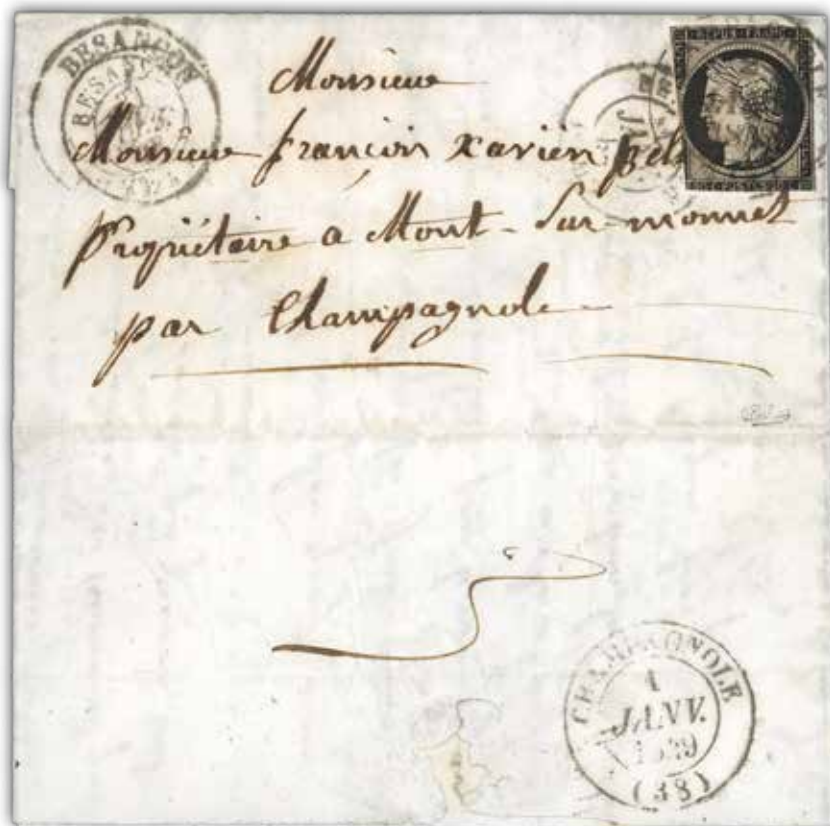 BESANÇON
BESANÇON
REPUB. FRANC.
Monsieur
Monsieur françois xavien
propriétaire a Mont-Sur-monnet
par Champagnole
CHAMPAGNOLE
1
JANV.
1849
(38)